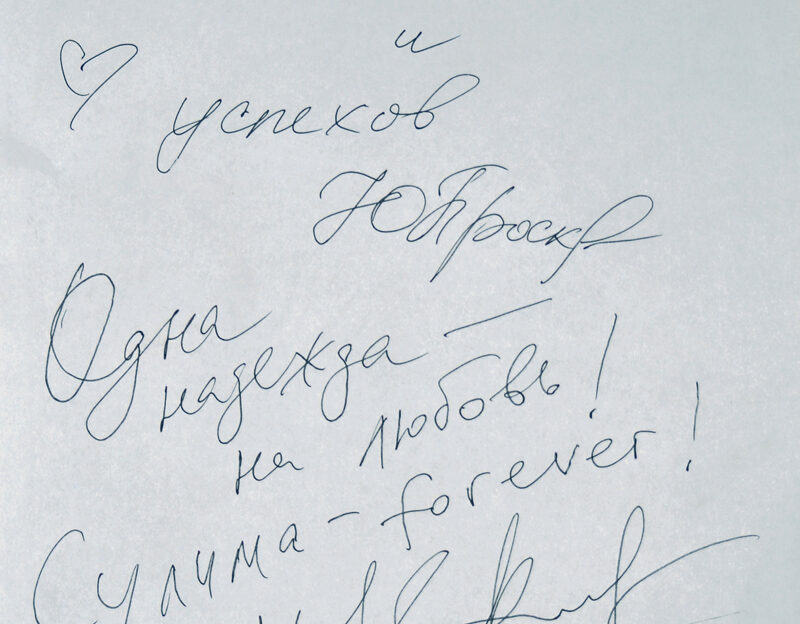 и
успехов
ЮПроск
Одна
надежда —
на любовь!
Сулима – forever!